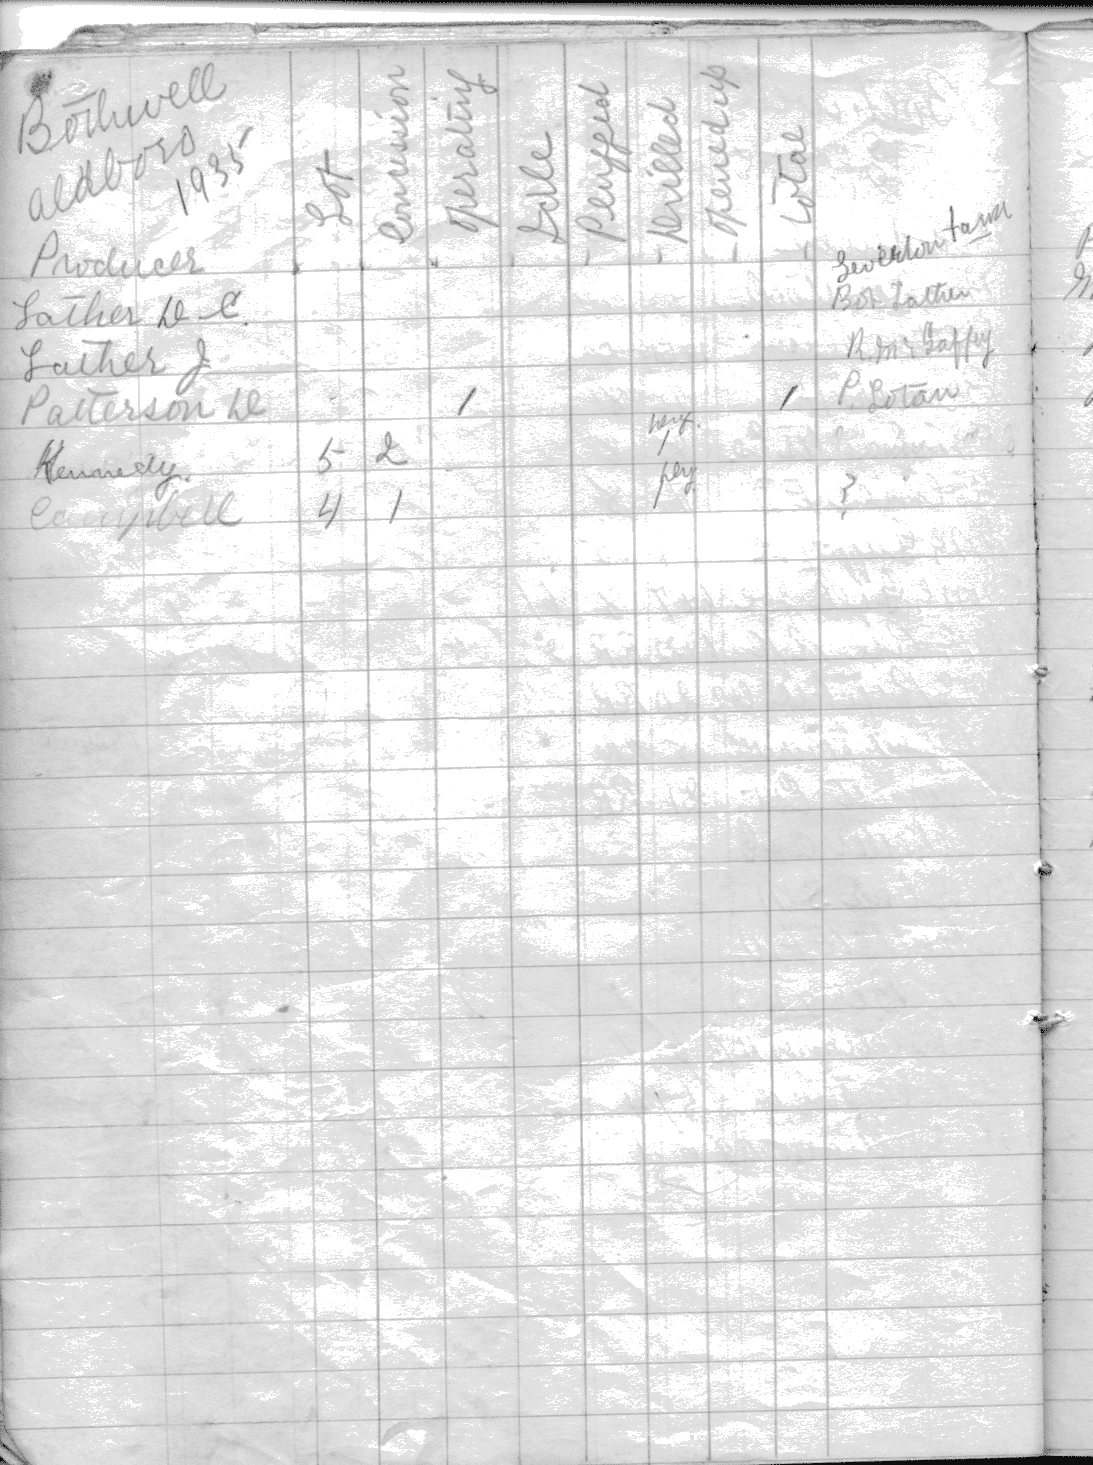 Bothwell
aldboro
1935
Producer Lot Concession Operating Idle Plugged Drilled Opened up Total
Leverton farm
Lather D. C. Bob Lather
Lather J R. McGaffey
Patterson D 1 1 P. Gotan
Kennedy. 5 2 1
Campbell 4 1 1 ?